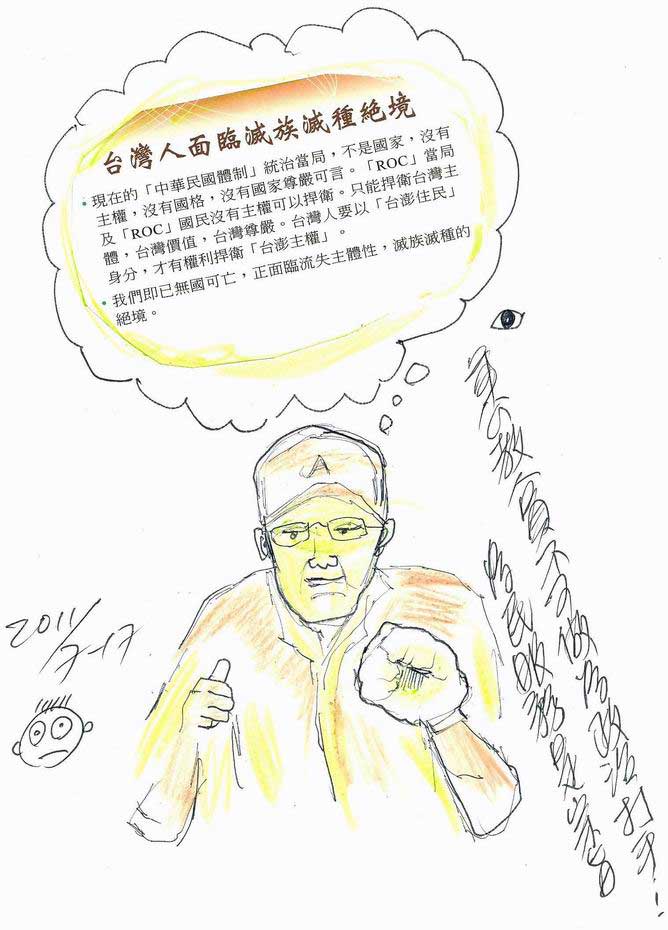 台灣人面臨滅族滅種絕境
• 現在的「中華民國體制」統治當局，不是國家，沒有
主權，沒有國格，沒有國家尊嚴可言。「ROC」當局
及「ROC」國民沒有主權可以捍衛。只能捍衛台灣主
體，台灣價值，台灣尊嚴。台灣人要以「台澎住民」
身分，才有權利捍衛「台澎主權」。
• 我們即已無國可亡，正面臨流失主體性，滅族滅種的
絕境。
A
軍公教人員不可做為政治打手!
為民服務是宗旨
2011/
7-17